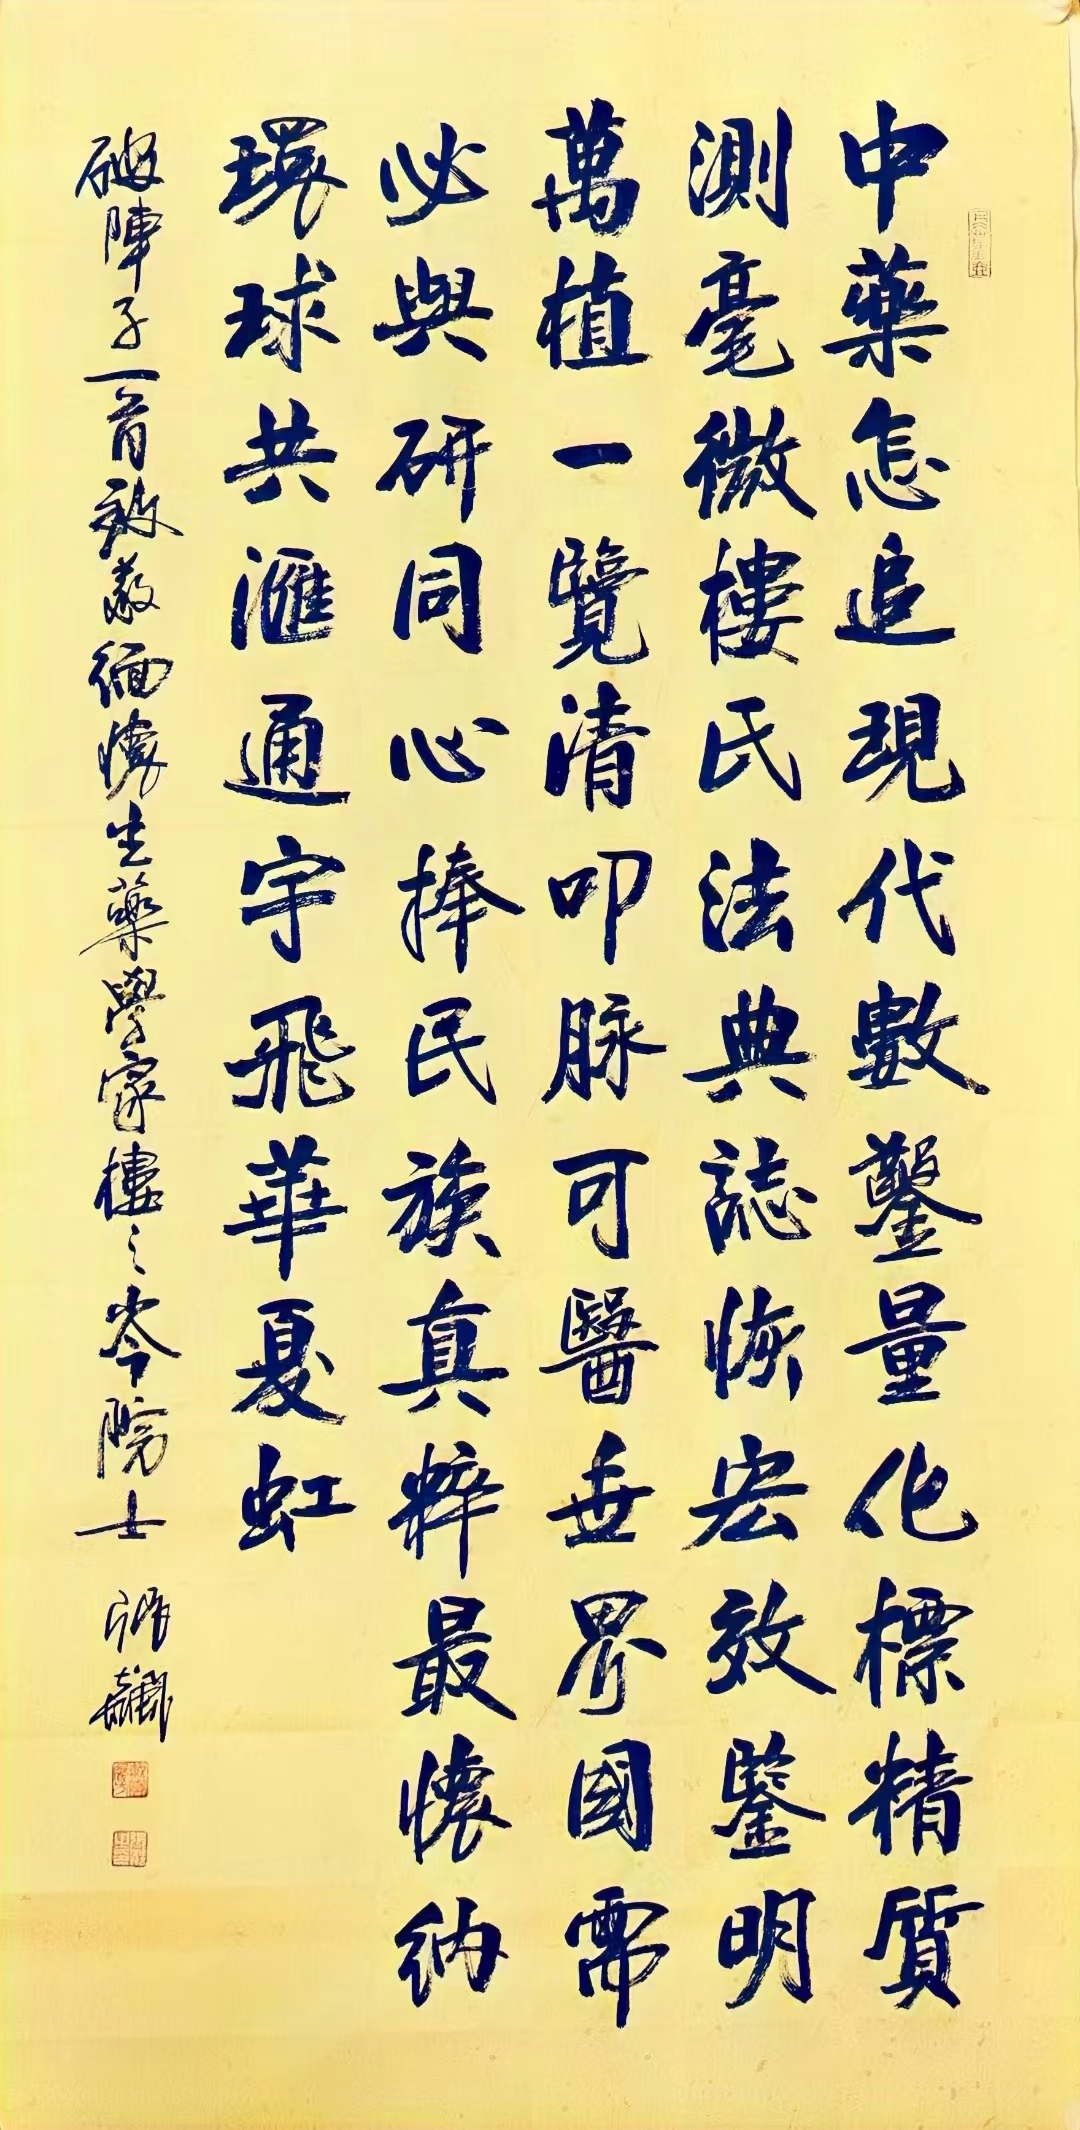 中藥怎追現代數鑿量化標精質
測毫微樓氏法典誌恢宏效鑒明
萬植一覽清叩脉可醫垂界國需
必與研同心捧民族真粹最懷納
環球共滙通宇飛華夏虹
破陣子一首敬緬懷生藥學家樓之岑院士